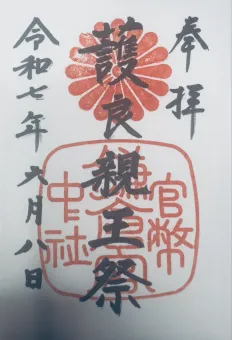 奉拝
護良親王祭
令和七年六月八日
官幣
中社
鎌倉宮